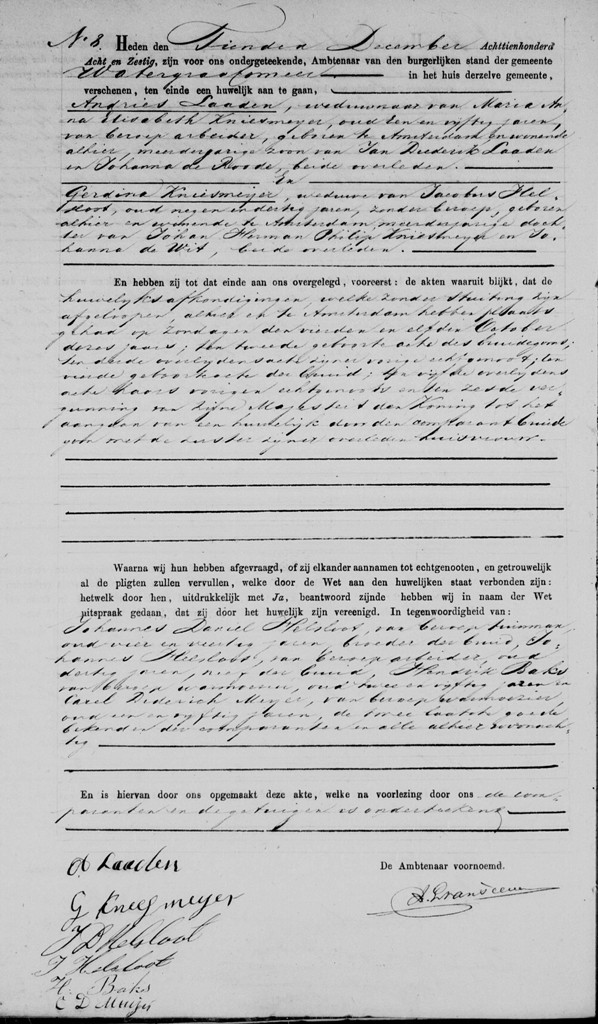 No 8. Heden den Tienden December Achttienhonderd
Acht en Zestig, zijn voor ons ondergeteekende, Ambtenaar van den burgerlijken stand der gemeente
Watergraafsmeer in het huis derzelve gemeente,
verschenen, ten einde een huwelijk aan te gaan,
Andries Laaden, weduwnaar van Maria An-
na Elisabeth Kniesmeyer, oud een en vyftig jaren,
van beroep arbeider, geboren te Amsterdam en wonende
alhier, meerderjarige zoon van Jan Diederik Laaden
en Johanna de Roode, beide overleden.
En
Gerdina Kniesmeijer, weduwe van Jacobus Hel-
sloot, oud negen en dertig jaren, zonder beroep, geboren
alhier en wonende te Amsterdam, meerderjarige doch-
ter van Johan Herman Philip Kniesmeyer en Jo-
hanna de Wit, beide overleden.
En hebben zij tot dat einde aan ons overgelegd, vooreerst: de akten waaruit blijkt, dat de
huwelyksafkondigingen, welke zonder stuiting zijn
afgeloopen, alhier en te Amsterdam hebben plaats
gehad op zondagen den vierden en elfden October
dezes jaars; ten tweede geboorte acte des bruidegoms;
ten derde overlydensacte zijner vorige echtgenoot; ten
vierde geboorteacte der bruid; ten vijfde overlijdens
acte haars vorigen echtgenoots en ten zesde ver-
gunning van Zijne Majesteit den Koning tot het
aangaan van een huwelijk door den comparant bruide
gom met de zuster zijner overleden huisvrouw.
Waarna wij hun hebben afgevraagd, of zij elkander aannamen tot echtgenooten, en getrouwelijk
al de pligten zullen vervullen, welke door de Wet aan den huwelijken staat verbonden zijn:
hetwelk door hen, uitdrukkelijk met Ja, beantwoord zijnde hebben wij in naam der Wet
uitspraak gedaan, dat zij door het huwelijk zijn vereenigd. In tegenwoordigheid van:
Johannes Daniel Helsloot, van beroep tuinman,
oud vier en veertig jaren, broeder der bruid, Jo-
hannes Helsloot, van beroep arbeider, oud
dertig jaren, neef der bruid, Hendrik Bakes
van beroep warmoezier, oud twee en vyftig jaren en
Carel Diederich Meyer, van beroep warmoezier,
oud een en vyftig jaren, de twee laatste goede
bekenden der comparanten en alle alhier woonach-
tig
En is hiervan door ons opgemaakt deze akte, welke na voorlezing door ons de com-
paranten en de getuigen is onderteekend
De Ambtenaar voornoemd.
A Laaden
G Kneesmeyer
J D Helsloot
J Helsloot
H. Bakes
C D Meijer